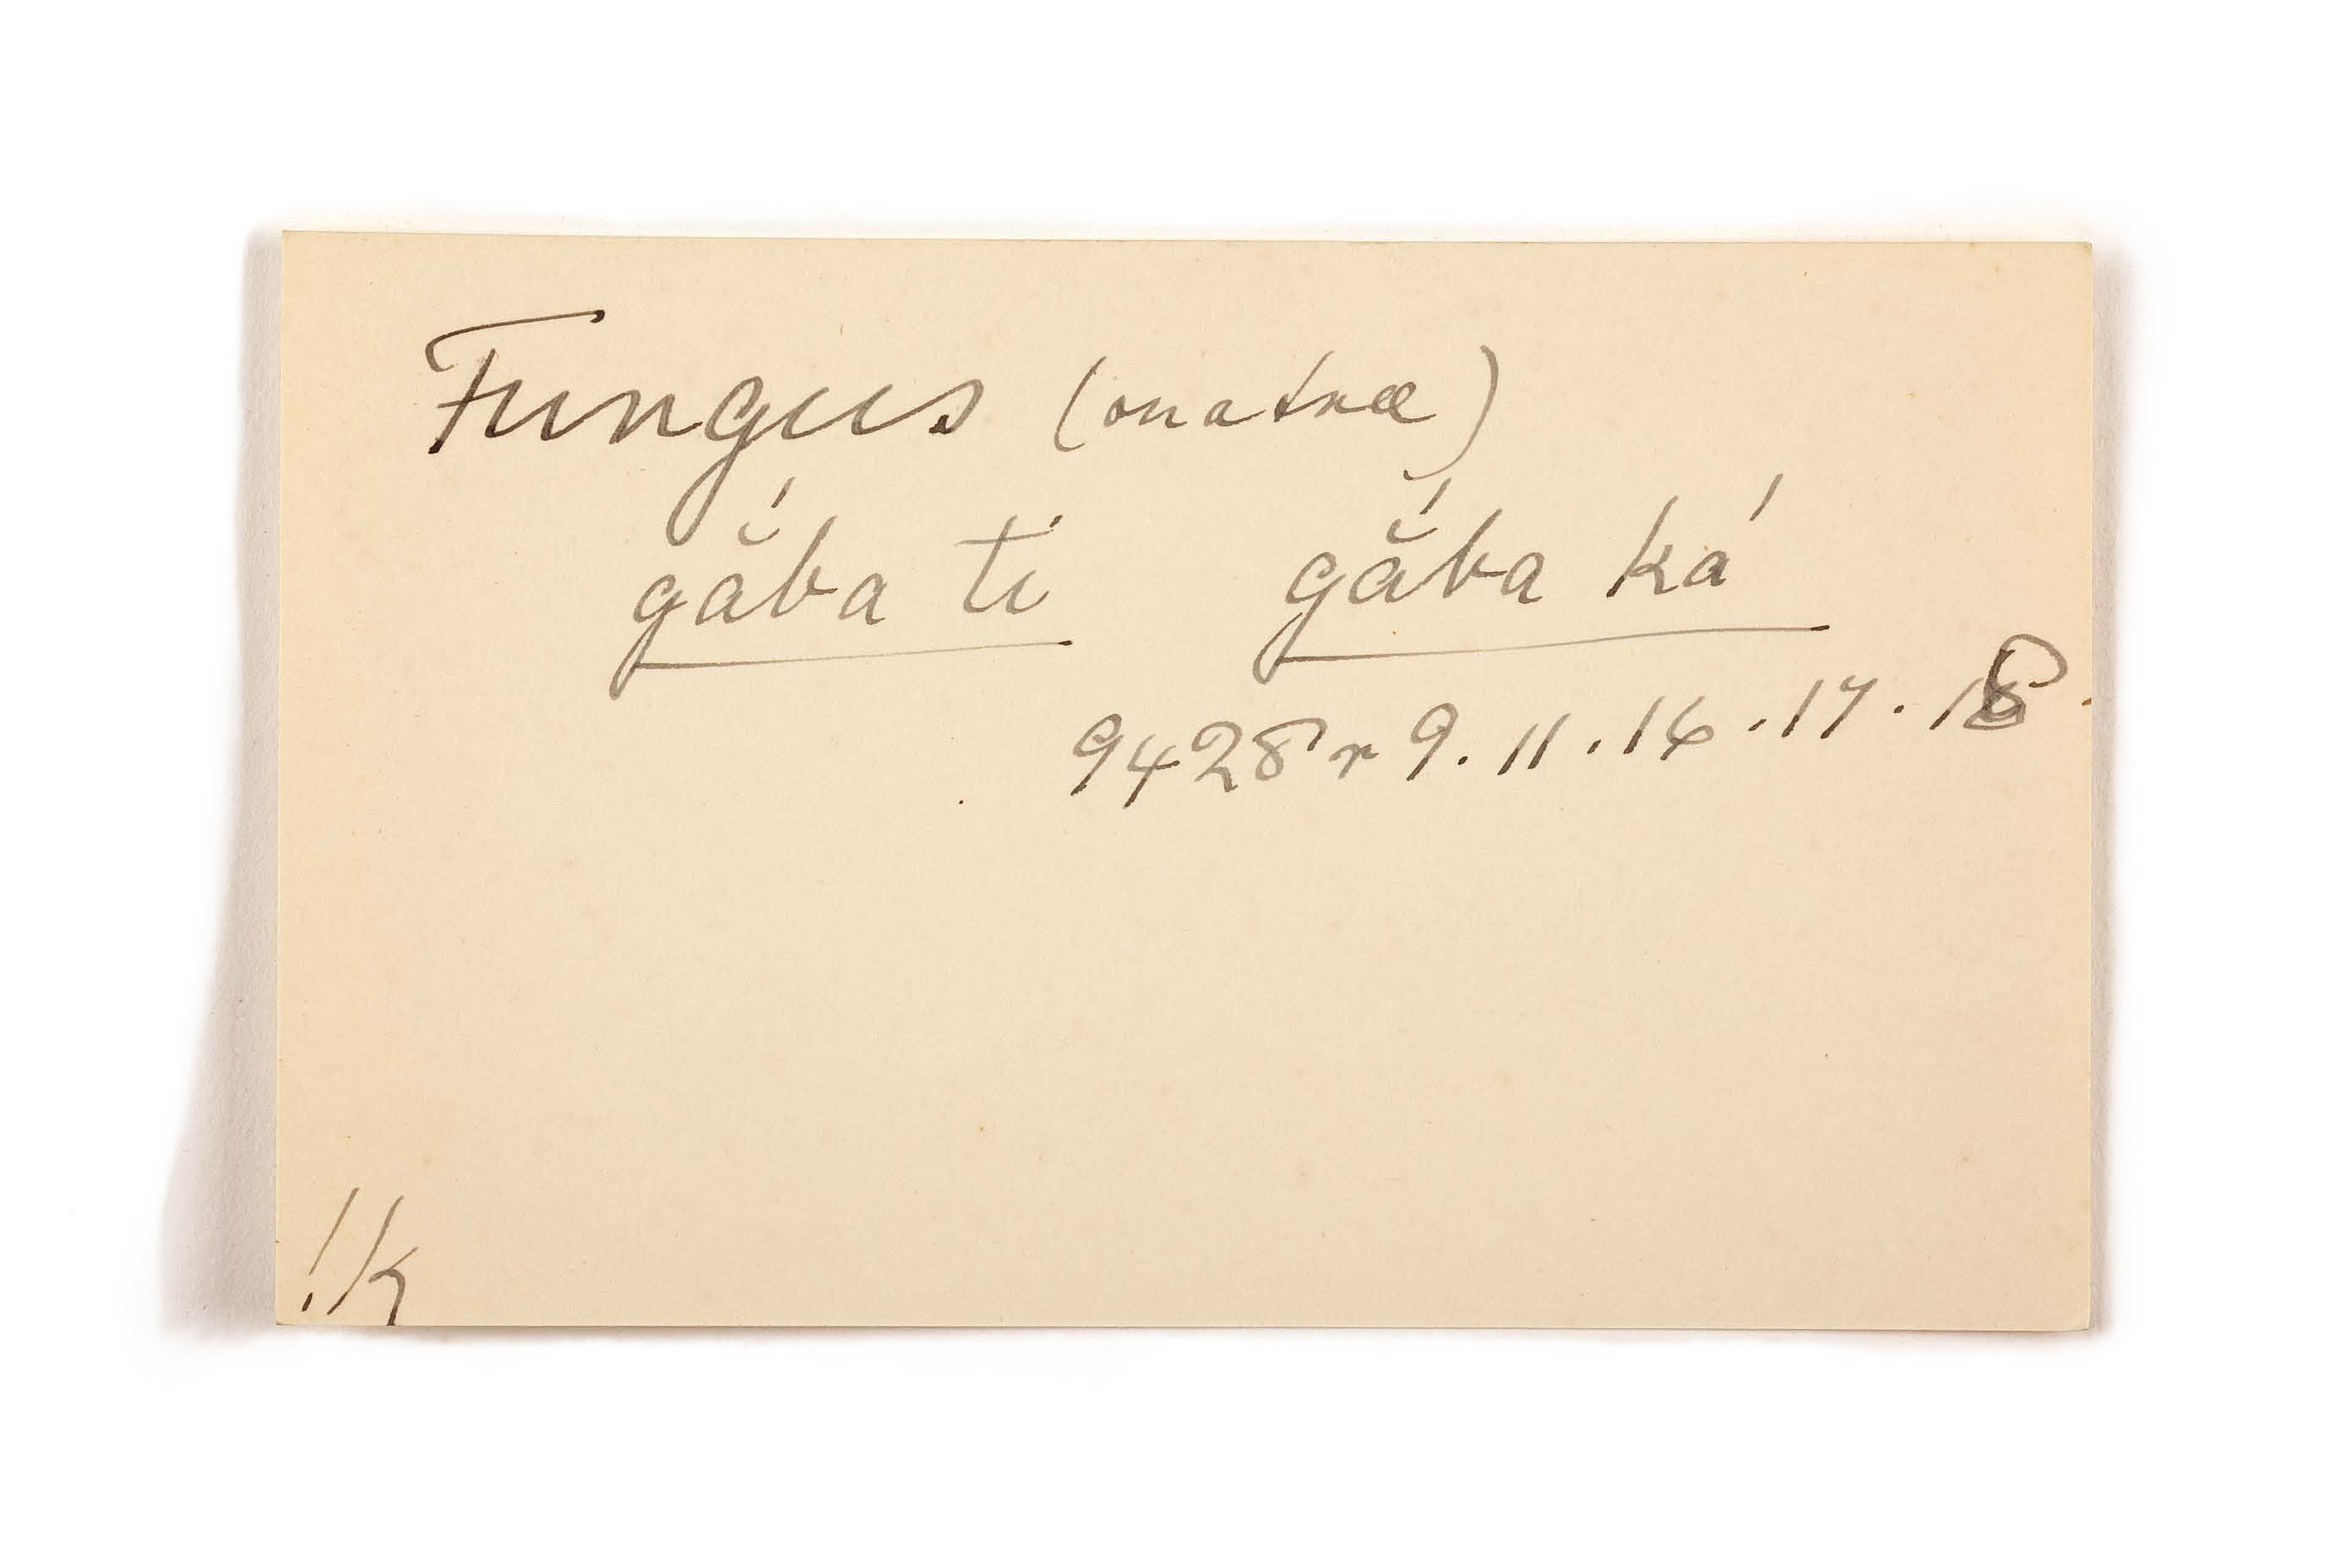 Fungus (on a tree)
gắba ti gắba ká
9428 r 9. 11. 16. 17. 18.
!k